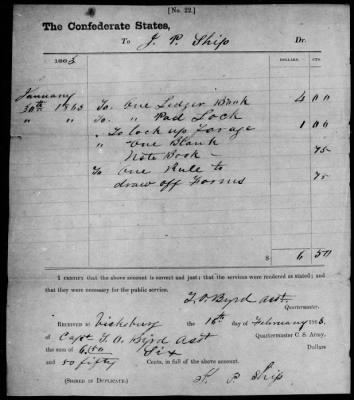 [No. 22.]
The Confederate States,
To J. P. Ship Dr.
1863 DOLLARS. CTS.
January
30th 1863 To One Ledger Blank 4 00
" " To " Pad Lock
To lock up Forage 1 00
" One Blank
Note Book — 75
To One Rule to
draw off Forms 75
$ 6 50
I CERTIFY that the above account is correct and just; that the services were rendered as stated; and
that they were necessary for the public service.
T. A. Byrd Asst.
Quartermaster.
RECEIVED at Vicksburg the 16th day of February 1863,
of Capt T. A. Byrd Asst Quartermaster C. S. Army,
the sum of Six Dollars
and 50 fifty Cents, in full of the above account.
(SIGNED IN DUPLICATE.) P. Ship